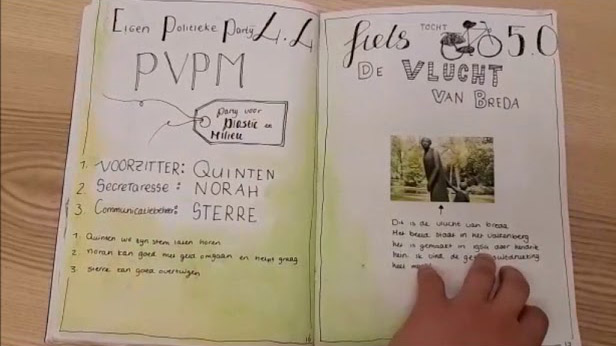 Eigen Politieke Partij 4.4
PVPM
Partij voor
Plastic en
Milieu
1. VOORZITTER: QUINTEN
2. Secretaresse: NORAH
3. Communicatiebeheer: STERRE
1. Quinten wil zijn stem laten horen
2. Norah kan goed met geld omgaan en helpt graag
3. Sterre kan goed overtuigen
16
fiets TOCHT 5.0
DE VLUCHT
VAN BREDA
Dit is de vlucht van breda
Het beeld staat in het valkenberg
het is gemaakt in door hendrik
ik vind de
heel